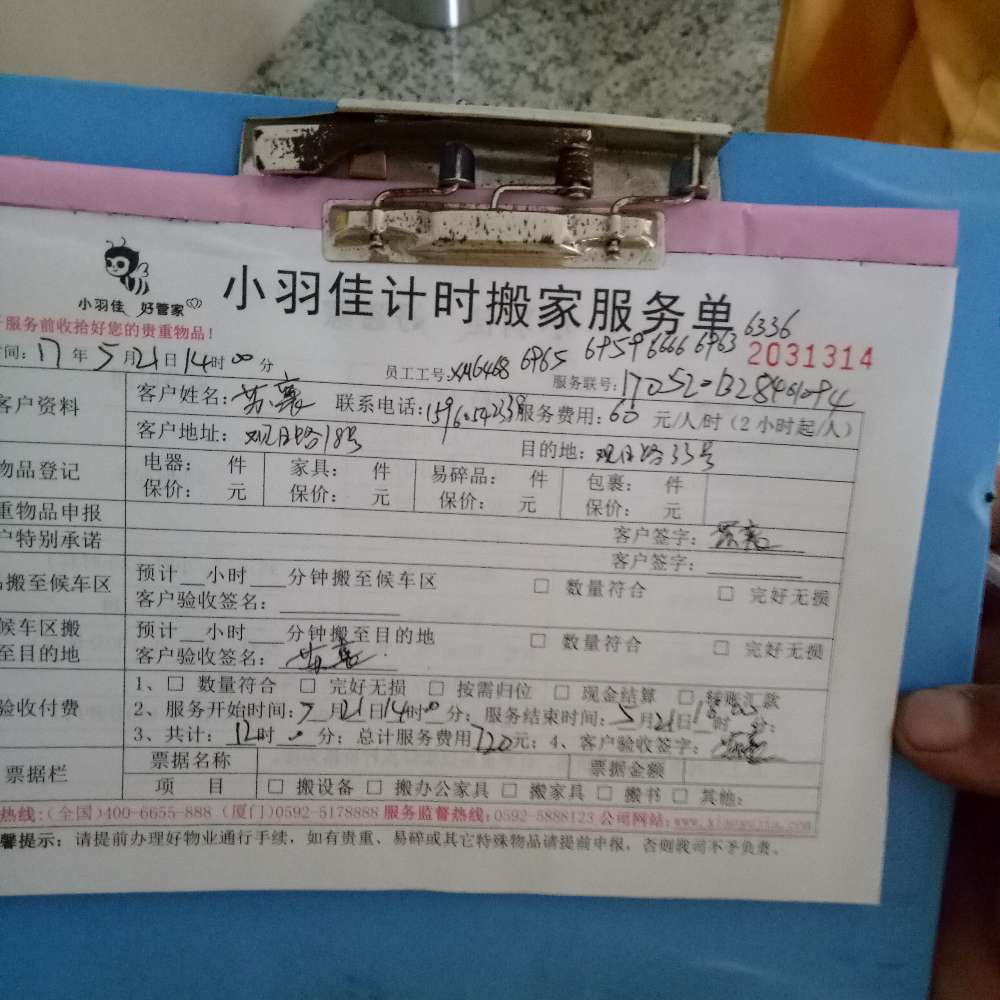 小羽佳计时搬家服务单
小羽佳 好管家
服务前收拾好您的贵重物品!
6336
2031314
间: 17 年 5 月 21 日 14 时 00 分 员工工号: XM6468 6965 6959 6666 6963
服务联号:
客户资料 客户姓名: 苏亮 联系电话: 服务费用: 60 元/人/时 (2小时起/人)
客户地址: 观日路18号 目的地: 观日路33号
物品登记 电器: 件 家具: 件 易碎品: 件 包裹: 件
保价: 元 保价: 元 保价: 元 保价: 元
重物品申报 客户签字: 苏亮
户特别承诺 客户签字:
搬至候车区 预计__小时___分钟搬至候车区 □ 数量符合 □ 完好无损
客户验收签名:
候车区搬 预计__小时___分钟搬至目的地 □ 数量符合 □ 完好无损
至目的地 客户验收签名: 苏亮
1、□ 数量符合 □ 完好无损 □ 按需归位 □ 现金结算 □ 转账汇款
验收付费 2、服务开始时间: 月21日14时0分; 服务结束时间: 5月21日 时 分;
3、共计: 12时 0分; 总计服务费用720元; 4、客户验收签字: 苏亮
票据栏 票据名称 票据金额
项 目 □ 搬设备 □ 搬办公家具 □ 搬家具 □ 搬书 □ 其他:
热线:(全国)400-6655-888 (厦门)0592-5178888 服务监督热线: 0592-5888123 公司网站:
馨提示: 请提前办理好物业通行手续, 如有贵重、易碎或其它特殊物品请提前申报, 否则我司不予负责。